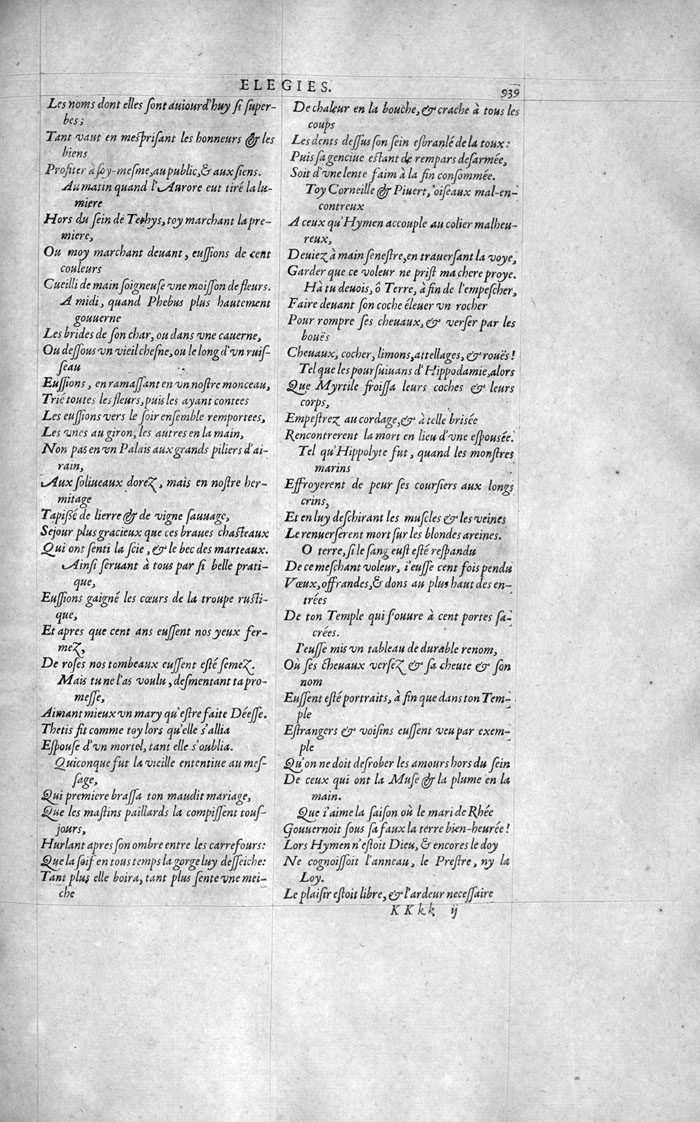 ELEGIES.
939
Les noms dont elles ſont auiourd'huy ſi ſuper-
bes;
Tant vaut en meſpriſant les honneurs & les
biens
Profiter à ſoy-meſme, au public, & aux ſiens.
Au matin quand l'Aurore eut tiré la lu-
miere
Hors du ſein de Tethys, toy marchant la pre-
miere,
Ou moy marchant deuant, euſſions de cent
couleurs
Cueilli de main ſoigneuse vne moiſſon de fleurs.
A midi, quand Phebus plus hautement
gouuerne
Les brides de ſon char, ou dans vne cauerne,
Ou deſſous vn vieil cheſne, ou le long d'vn ruiſ-
ſeau
Euſſions, en ramaſſant en vn noſtre monceau,
Trié toutes les fleurs, puis les ayant contees
Les euſſions vers le ſoir enſemble remportees,
Les vnes au giron, les autres en la main,
Non pas en vn Palais aux grands piliers d'ai-
rain,
Aux ſoliueaux dorez, mais en noſtre her-
mitage
Tapißé de lierre & de vigne ſauuage,
Sejour plus gracieux que ces braues chaſteaux
Qui ont ſenti la ſcie, & le bec des marteaux.
Ainſi ſeruant à tous par ſi belle prati-
que,
Euſſions gaigné les cœurs de la troupe ruſti-
que,
Et apres que cent ans euſſent nos yeux fer-
mez,
De roſes nos tombeaux euſſent eſté ſemez.
Mais tu ne l'as voulu, deſmentant ta pro-
meſſe,
Aimant mieux vn mary qu'eſtre faite Déeſſe.
Thetis fit comme toy lors qu'elle s'allia
Eſpouse d'vn mortel, tant elle s'oublia.
Quiconque fut la vieille ententiue au meſ-
ſage,
Qui premiere braſſa ton maudit mariage,
Que les maſtins paillards la compiſſent touſ-
jours,
Hurlant apres ſon ombre entre les carrefours:
Que la ſoif en tous temps la gorge luy deſſeiche:
Tant plus elle boira, tant plus ſente vne mei-
che
De chaleur en la bouche, & crache à tous les
coups
Les dents deſſus ſon ſein eſbranlé de la toux:
Puis ſa genciue eſtant de rempars deſarmée,
Soit d'vne lente faim à la fin conſommée.
Toy Corneille & Piuert, oiſeaux mal-en-
contreux
A ceux qu'Hymen accouple au colier malheu-
reux,
Deuiez à main ſeneſtre, en trauerſant la voye,
Garder que ce voleur ne priſt ma chere proye.
Hà tu deuois, ô Terre, à fin de l'empeſcher,
Faire deuant ſon coche éleuer vn rocher
Pour rompre ſes cheuaux, & verſer par les
bouës
Cheuaux, cocher, limons, attellages, & rouës!
Tel que les pourſuiuans d'Hippodamie, alors
Que Myrtile froiſſa leurs coches & leurs
corps,
Empeſtrez au cordage, & à telle briſée
Rencontrerent la mort en lieu d'vne eſpouſée.
Tel qu'Hippolyte fut, quand les monſtres
marins
Effroyerent de peur ſes courſiers aux longs
crins,
Et en luy deſchirant les muſcles & les veines
Le renuerſerent mort ſur les blondes areines.
O terre, ſi le ſang euſt eſté reſpandu
De ce meſchant voleur, i'euſſe cent fois pendu
Vœux, offrandes, & dons au plus haut des en-
trées
De ton Temple qui ſ'ouure à cent portes ſa-
crées.
I'euſſe mis vn tableau de durable renom,
Où ſes cheuaux verſez & ſa cheute & ſon
nom
Euſſent eſté portraits, à fin que dans ton Tem-
ple
Eſtrangers & voiſins euſſent veu par exem-
ple
Qu'on ne doit deſrober les amours hors du ſein
De ceux qui ont la Muſe & la plume en la
main.
Que i'aime la ſaiſon où le mari de Rhée
Gouuernoit ſous ſa faux la terre bien-heurée!
Lors Hymen n'eſtoit Dieu, & encores le doy
Ne cognoiſſoit l'anneau, le Preſtre, ny la
Loy.
Le plaiſir eſtoit libre, & l'ardeur neceſſaire
KKkk ij